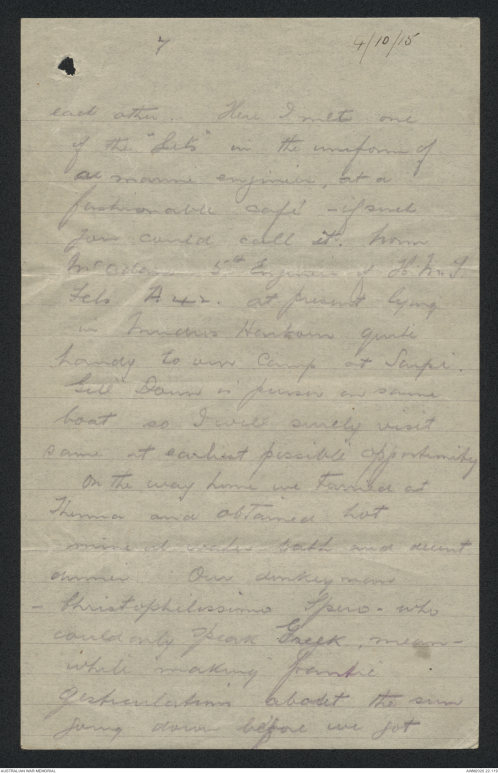 7
4/10/15
each other. Here I met one
of the "Lets" in the uniform of
a marine engineer, at a
fashionable café - if such
you could call it. from
5th Engineer of H.M.T
A 42. at present lying
in Mudros Harbour quite
handy to our Camp at Sarpi.
"Gill" Dawn is purser on same
boat so I will surely visit
same at earliest possible opportunity
On the way home we turned at
Therma and obtained hot
mineral water bath and decent
dinner. Our donkey man
- Christophilissimo Spiro - who
could only speak Greek, mean-
while making frantic
gesticulations about the sun
going down before we got
AUSTRALIAN WAR MEMORIAL